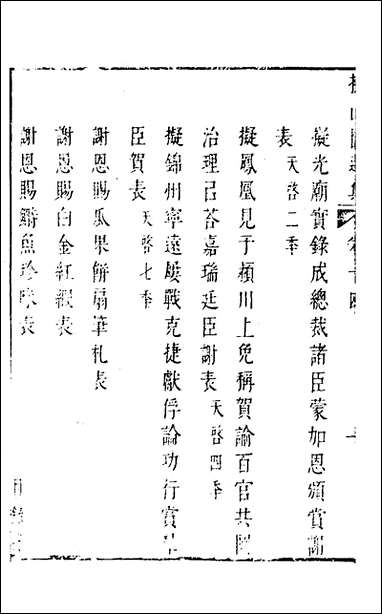 擬光廟實錄成總裁諸臣蒙加恩頒賞謝
表天啓二年
擬鳳凰見于潁川上免稱賀諭百官共圖
治理己荅嘉瑞廷臣謝表天啓四年
擬錦州寧遠屢戰克捷獻俘論功行賞
臣賀表天啓七年
謝恩賜瓜果餅扇筆札表
謝恩賜白金紅綬表
謝恩賜
表